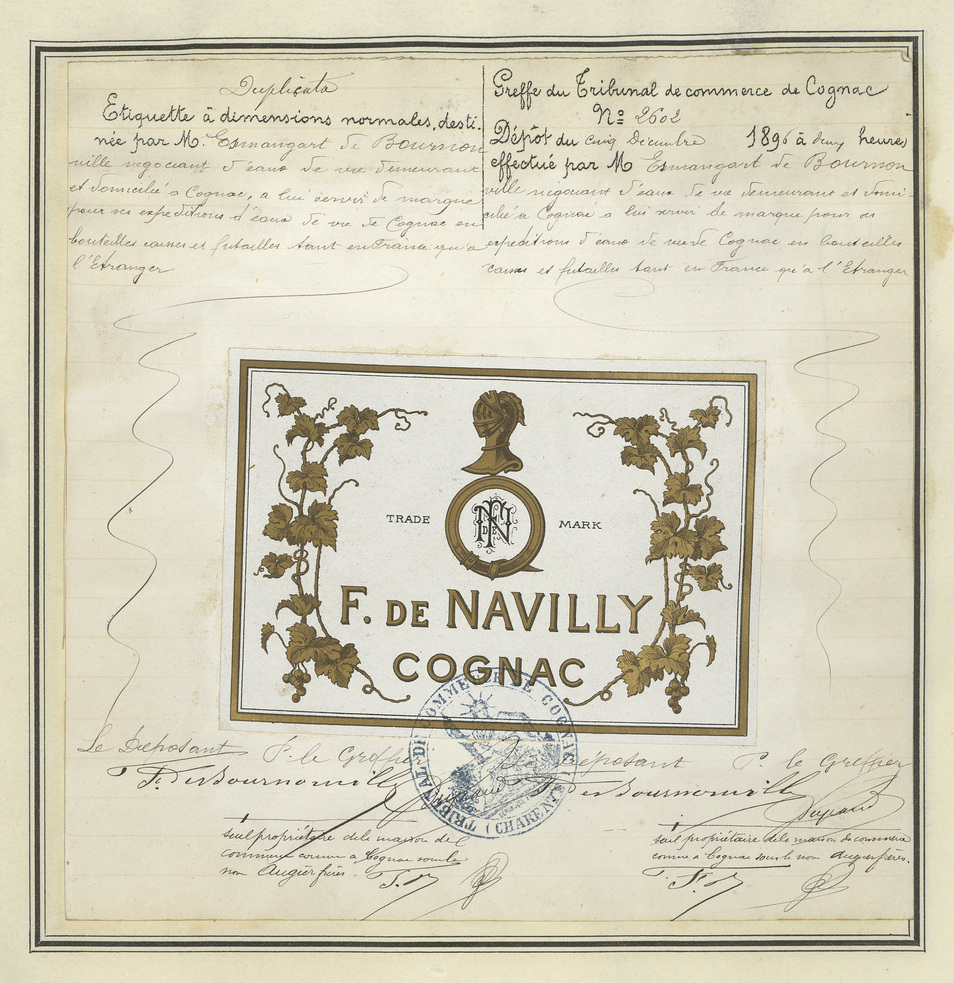 Duplicata
Etiquette à dimensions normales, desti-
née par M. Esmangart de Bournon
ville negociant d'eaux de vie demeurant
et domicilié à Cognac, a lui servir de marque
pour ses expéditions d'eaux de vie de Cognac en
bouteilles caisses et futailles tant en France qu'a
l'Etranger
Greffe du Tribunal de commerce de Cognac
Nº 2602
Dépôt du cinq Décembre 1896 à deux heures
effectué par M Esmangart de Bournon
ville negociant d'eaux de vie demeurant et domi
cilié à Cognac a lui servir de marque pour ses
expeditions d'eaux de vie de Cognac en bouteilles
caisses et futailles tant en France qu'à l'Etranger
TRADE MARK
F DE N
F. DE NAVILLY
COGNAC
TRIBUNAL DE COMMERCE DE COGNAC
(CHARENTE)
Le Déposant P. le Greffier
F. de Bournonville
seul propriétaire de la maison de
commerce connue à Cognac sous le
nom Augier frères.
Déposant P. le Greffier
F. de Bournonville
seul propriétaire de la maison de commerce
connue à Cognac sous le nom Augier frères.